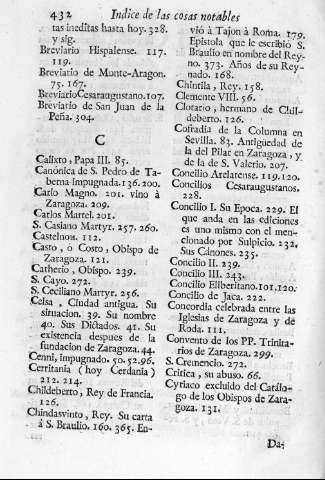 432 Indice de las cosas notables
tas ineditas hasta hoy. 328.
y sig.
Breviario Hispalense. 117.
119.
Breviario de Monte-Aragon.
75. 167.
Breviario Cesaraugustano. 107.
Breviario de San Juan de la
Peña. 304.
C
Calixto, Papa III. 85.
Canónica de S. Pedro de Ta-
berna impugnada. 136. 200.
Carlo Magno. 201. vino à
Zaragoza. 209.
Carlos Martel. 201.
S. Casiano Martyr. 257. 260.
Castelnou. 112.
Casto, ò Costo, Obispo de
Zaragoza. 121.
Catherio, Obispo. 239.
S. Cayo. 272.
S. Ceciliano Martyr. 256.
Celsa, Ciudad antigua. Su
situacion. 39. Su nombre
40. Sus Dictados. 41. Su
existencia despues de la
fundacion de Zaragoza. 44.
Cenni, impugnado. 50. 52. 96.
Cerritania (hoy Cerdania)
212. 214.
Childeberto, Rey de Francia.
126.
Chindasvinto, Rey. Su carta
á S. Braulio. 160. 365. En-
vió à Tajon à Roma. 179.
Epistola que le escribió S.
Braulio en nombre del Rey-
no. 373. Años de su Rey-
nado. 168.
Chintila, Rey. 158.
Clemente VIII. 56.
Clotario, hermano de Chil-
deberto. 126.
Cofradia de la Columna en
Sevilla. 83. Antigüedad de
la del Pilar en Zaragoza, y
de la de S. Valerio. 207.
Concilio Arelatense. 119. 120.
Concilios Cesaraugustanos.
228.
Concilio I. Su Epoca. 229. El
que anda en las ediciones
es uno mismo con el men-
cionado por Sulpicio. 232.
Sus Cánones. 235.
Concilio II. 239.
Concilio III. 243.
Concilio Eliberitano. 101. 120.
Concilio de Jaca. 222.
Concordia celebrada entre las
Iglesias de Zaragoza y de
Roda. 111.
Convento de los PP. Trinita-
rios de Zaragoza. 299.
S. Cremencio. 272.
Critica, su abuso. 66.
Cyriaco excluido del Catálo-
go de los Obispos de Zara-
goza. 131.
Da-